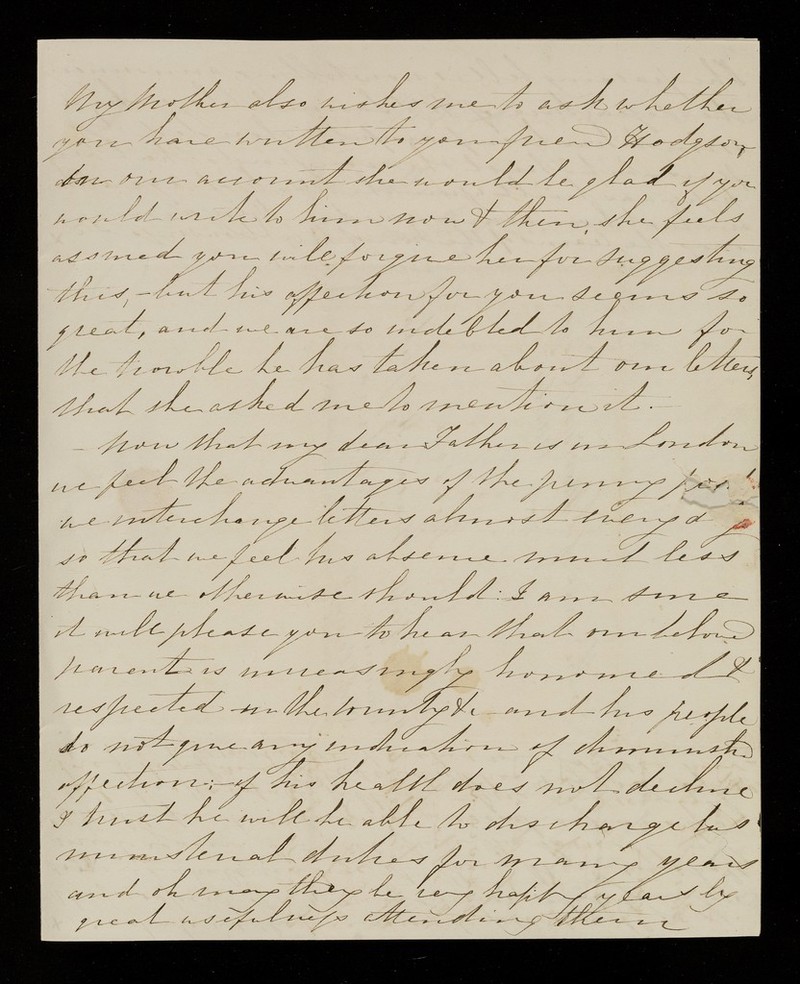 My Mother also wishes me to ask whether
you have written to your friend Hodgson,
on our account she would be glad if you
would write to him now & then, she feels
assured you will forgive her for suggesting
this, - but his affection for you seems so
great, and we are so indebted to him for
the trouble he has taken about our letters,
that she asked me to mention it. -
- Now that my dear Father is in London
we feel the advantages of the penny
we interchange letters almost every
so that we feel his absence much less
than we otherwise should: I am sure
it will please you to hear that our beloved
parent is increasingly honoured &
respected in the County &c and his people
do not give any indication of diminishd
affection; - if his health does not decline
I trust he will be able to discharge his
ministerial duties for many years
and oh may they be very happy years by
great usefulness attending them